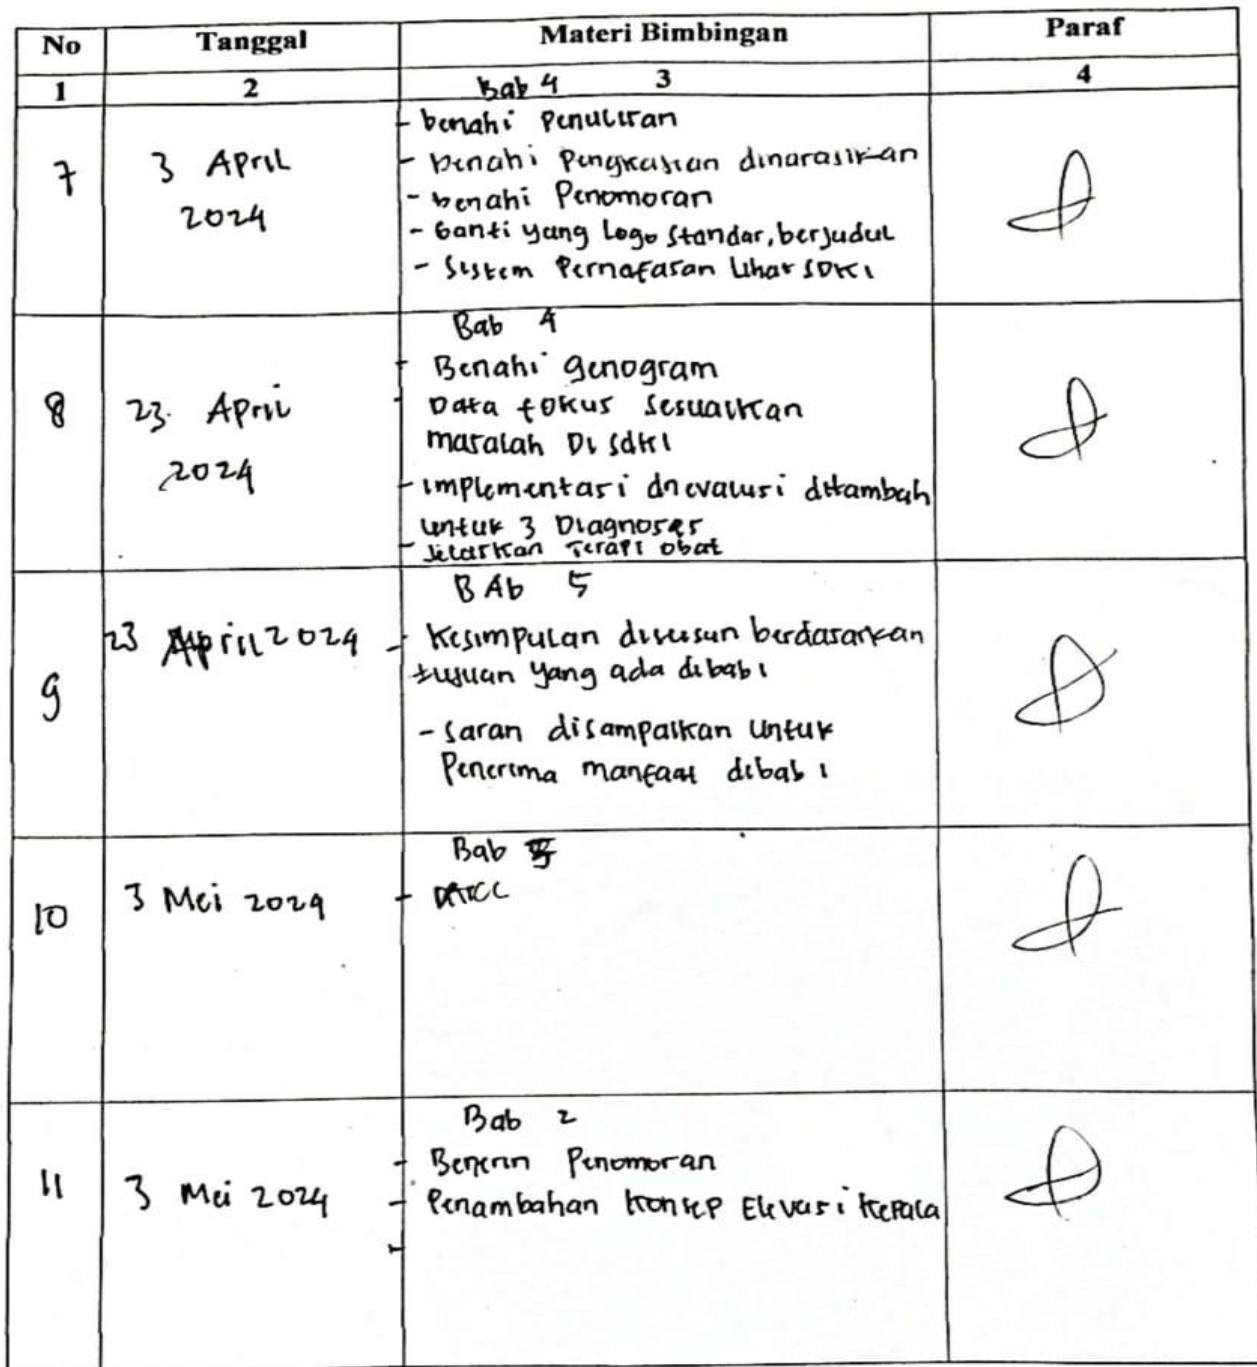 No Tanggal Materi Bimbingan Paraf
1 2 3 4
Bab 4
- benahi Penulisan
7 3 April 2024
- benahi Pengkajian dinarasikan
- benahi Penomoran
- Ganti yang Logo Standar, berjudul
- Sistem Pernafasan Lihat SDKI
Bab 4
- Benahi genogram
8 23 April 2024
- Data fokus sesuaikan
masalah Di sdki
- implementasi dnevalusi ditambah
untuk 3 Diagnosa
- Jelaskan Terapi obat
BAb 5
9 23 April 2024
- Kesimpulan disusun berdasarkan
tujuan yang ada dibab 1
- Saran disampaikan untuk
Penerima manfaat dibab 1
Bab 5
10 3 Mei 2024
-
Bab 2
- Benerin Penomoran
11 3 Mei 2024
- Penambahan Konsep Elevasi Kepala
-